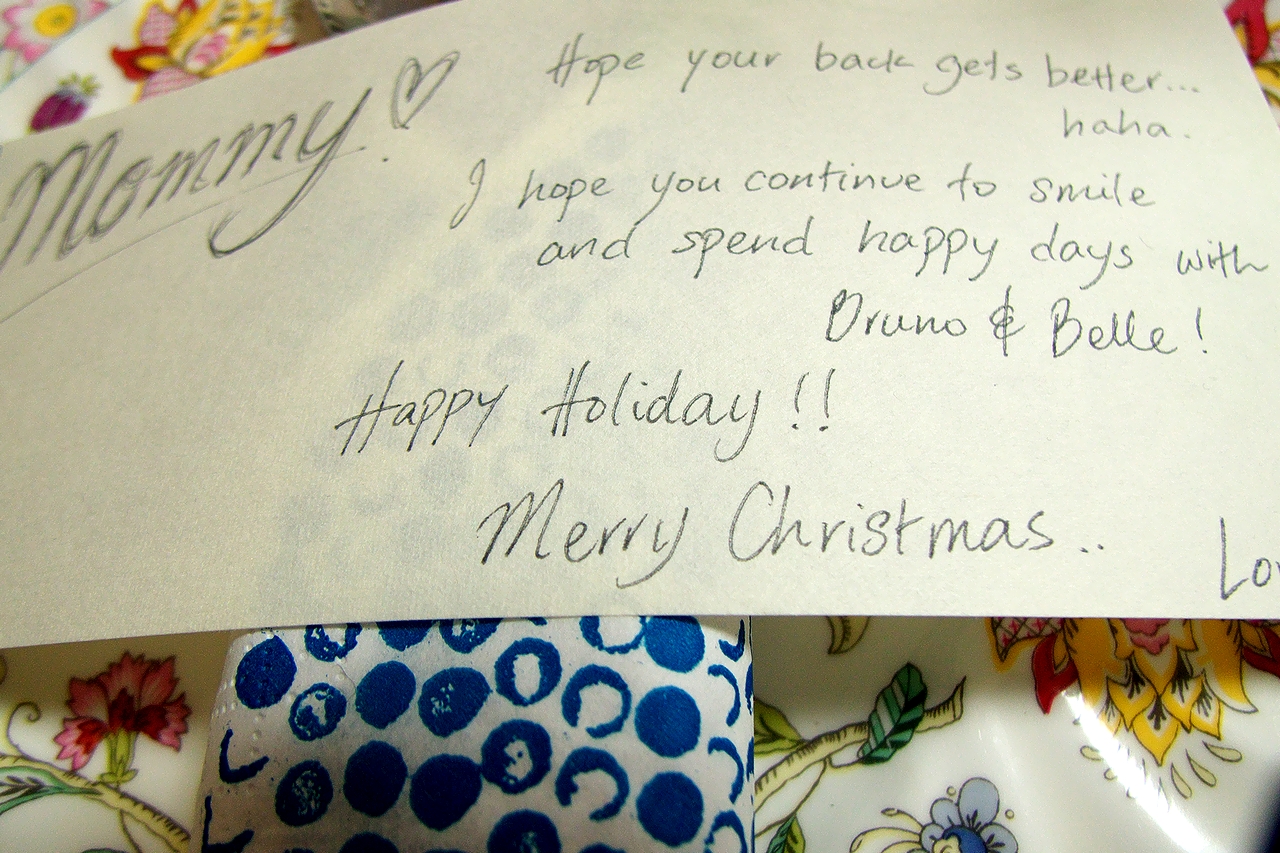 Mommy! ♡
Hope your back gets better...
haha.
I hope you continue to smile
and spend happy days with
Bruno & Belle!
Happy Holiday!!
Merry Christmas..